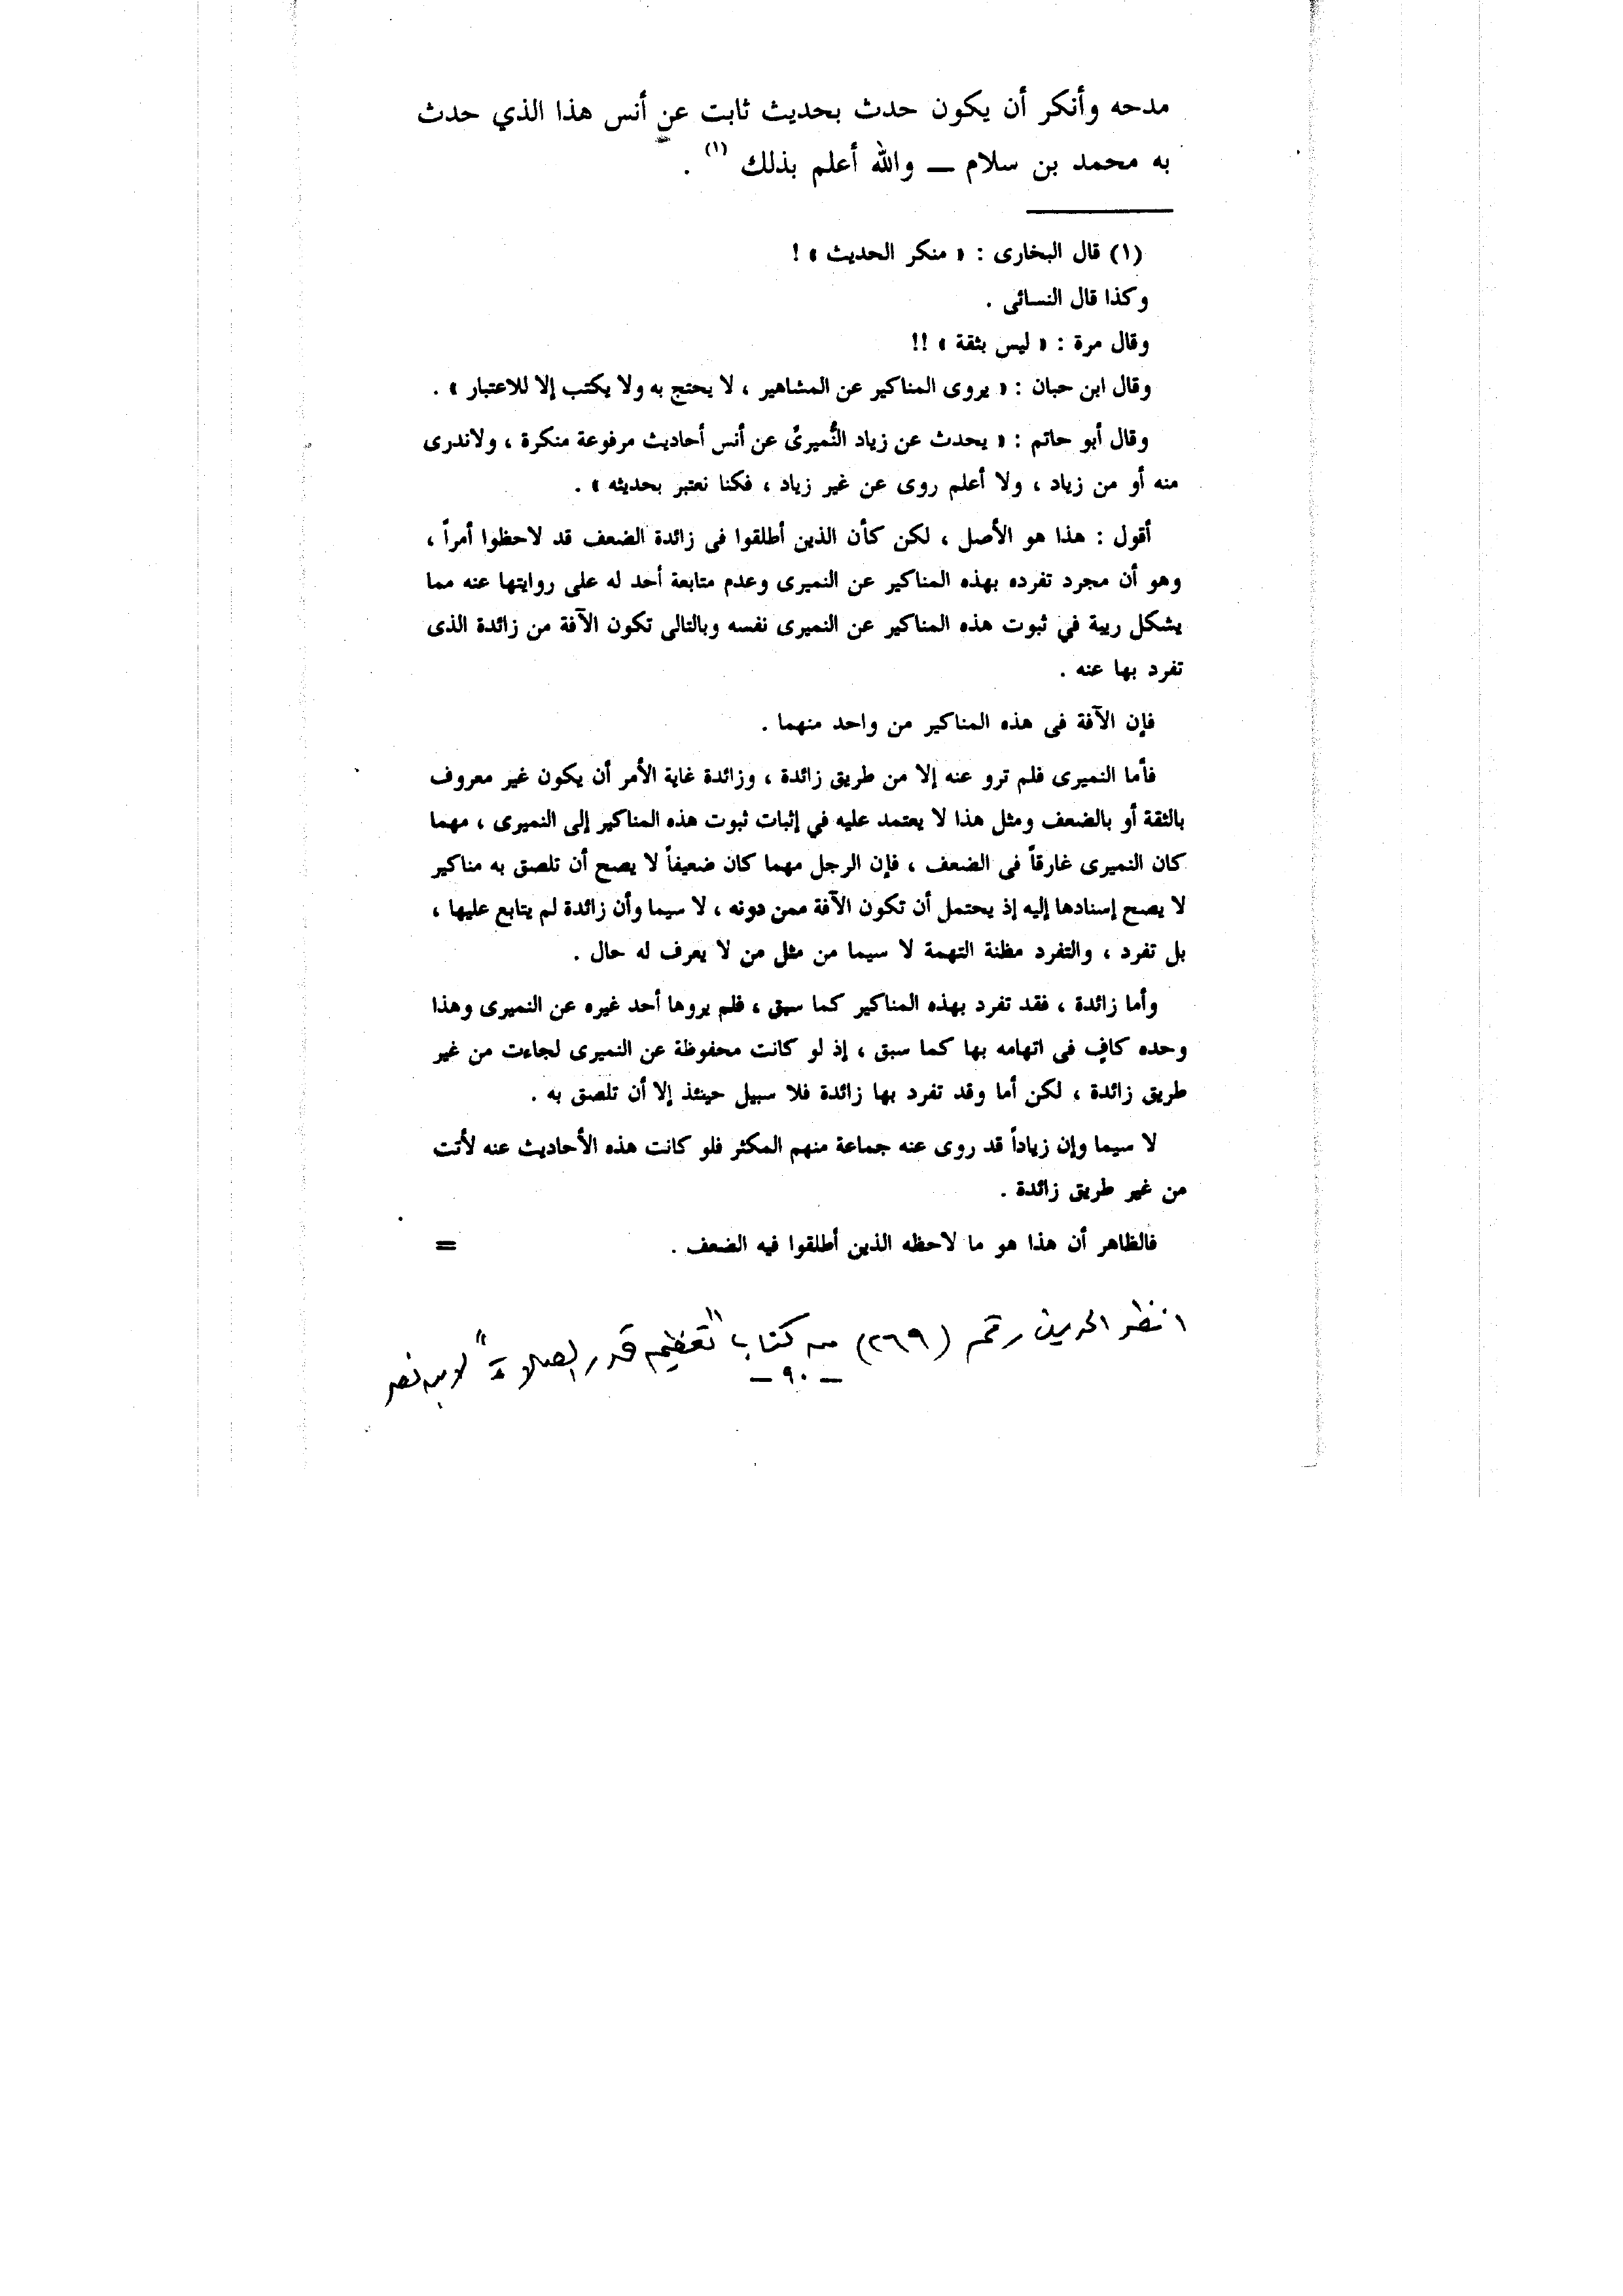 مدحه وأنكر أن يكون حدث بحديث ثابت عن أنس هذا الذي حدث
به محمد بن سلام — والله أعلم بذلك (١) .
(١) قال البخارى : « منكر الحديث » !
وكذا قال النسائى .
وقال مرة : « ليس بثقة » !!
وقال ابن حبان : « يروى المناكير عن المشاهير ، لا يحتج به ولا يكتب إلا للاعتبار » .
وقال أبو حاتم : « يحدث عن زياد النُّميرىّ عن أنس أحاديث مرفوعة منكرة ، ولاندرى
منه أو من زياد ، ولا أعلم روى عن غير زياد ، فكنا نعتبر بحديثه » .
أقول : هذا هو الأصل ، لكن كأن الذين أطلقوا فى زائدة الضعف قد لاحظوا أمراً ،
وهو أن مجرد تفرده بهذه المناكير عن النميرى وعدم متابعة أحد له على روايتها عنه مما
يشكل ريبة في ثبوت هذه المناكير عن النميرى نفسه وبالتالى تكون الآفة من زائدة الذى
تفرد بها عنه .
فإن الآفة فى هذه المناكير من واحد منهما .
فأما النميرى فلم ترو عنه إلا من طريق زائدة ، وزائدة غاية الأمر أن يكون غير معروف
بالثقة أو بالضعف ومثل هذا لا يعتمد عليه في إثبات ثبوت هذه المناكير إلى النميرى ، مهما
كان النميرى غارقاً فى الضعف ، فإن الرجل مهما كان ضعيفاً لا يصح أن تلصق به مناكير
لا يصح إسنادها إليه إذ يحتمل أن تكون الآفة ممن دونه ، لا سيما وأن زائدة لم يتابع عليها ،
بل تفرد ، والتفرد مظنة التهمة لا سيما من مثل من لا يعرف له حال .
وأما زائدة ، فقد تفرد بهذه المناكير كما سبق ، فلم يروها أحد غيره عن النميرى وهذا
وحده كافٍ فى اتهامه بها كما سبق ، إذ لو كانت محفوظة عن النميرى لجاءت من غير
طريق زائدة ، لكن أما وقد تفرد بها زائدة فلا سبيل حينئذ إلا أن تلصق به .
لا سيما وإن زياداً قد روى عنه جماعة منهم المكثر فلو كانت هذه الأحاديث عنه لأتت
من غير طريق زائدة .
فالظاهر أن هذا هو ما لاحظه الذين أطلقوا فيه الضعف . =
انظر الحديث رقم (٢٦٩) من كتاب "تعظيم قدر الصلاة" لابن نصر
— ٩٠ —